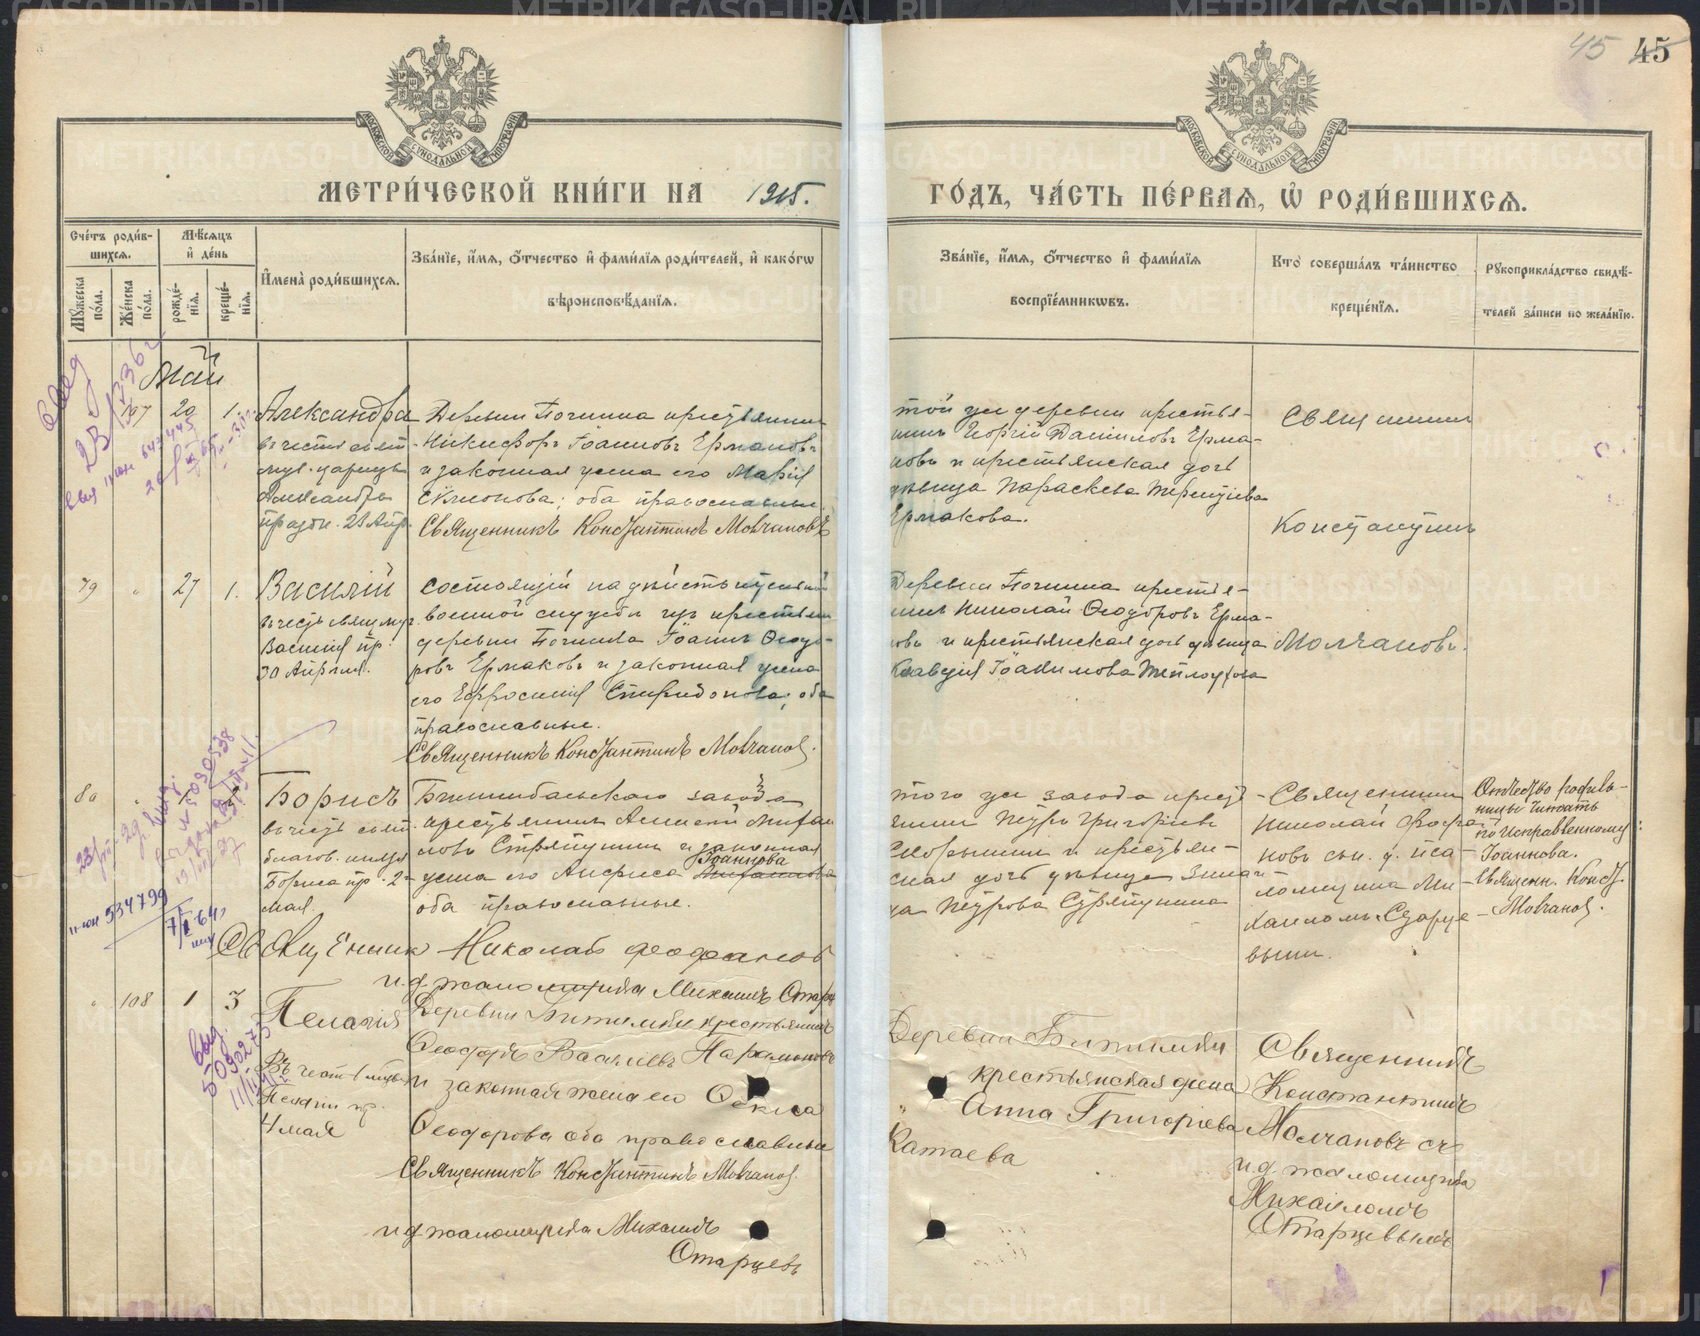 45 45
МОСКОВСКОЙ СѴНОДАЛЬНОЙ ТИПОГРАФІИ
МОСКОВСКОЙ СѴНОДАЛЬНОЙ ТИПОГРАФІИ
МЕТРИ́ЧЕСКОЙ КНИ́ГИ НА 1915.
ГО́ДЪ, ЧА́СТЬ ПЕ́РВАЯ, Ѡ҆ РОДИ́ВШИХСЯ.
Сче́тъ роди́вшихся.
Мѣ́сяцъ и҆ де́нь
Мꙋ́жеска по́ла.
Же́нска по́ла.
рожде́нїя.
креще́нїя.
И҆мена̀ роди́вшихся.
Зва́нїе, и҆́мя, ѻ҆́тчество и҆ фами́лїя роди́телей, и҆ како́гѡ
вѣроисповѣ́данїя.
Зва́нїе, и҆́мя, ѻ҆́тчество и҆ фами́лїя
воспрїе́мникѡвъ.
Кто̀ соверша́лъ та́инство
креще́нїя.
Рꙋкоприкла́дство свидѣ́-
телей за́писи по жела́нїю.
Май
107 20 1. Александра
въ честь свят.
муч. царицы
Александры
празн. 23 Апр.
Деревни Починка крестьянинъ
Никифоръ Іоанновъ Ермаковъ
и законная жена его Марія
Симонова; оба православные.
Священникъ Константинъ Молчановъ
той же деревни крестья-
нинъ Георгій Даніиловъ Ерма-
ковъ и крестьянская дочь
дѣвица Параскева Терентіева
Ермакова.
Священникъ
Константинъ
79 " 27 1. Василій
въ честь свящмуч.
Василія пр.
30 Апрѣля.
Состоящій на дѣйствительной
военной службѣ изъ крестьянъ
деревни Починка Іоаннъ Ѳеодо-
ровъ Ермаковъ и законная жена
его Ефросинія Спиридонова; оба
православные.
Священникъ Константинъ Молчановъ.
Деревни Починка крестья-
нинъ Николай Ѳеодоровъ Ерма-
ковъ и крестьянская дочь дѣвица
Клавдія Іоакимова Теплоухова
Молчановъ.
80 " Борисъ
въ честь свят.
благов. князя
Бориса пр. 2
мая.
Билимбаевскаго завода
крестьянинъ Алексѣй
Стряпунинъ и законная
Іоаннова
жена его Анфиса
оба православные.
того же завода крест-
янинъ Петръ Григорьевъ
и крестьян-
ская дочь дѣвица Зинаи-
да Петрова Стряпунина
Священникъ
Николай Феофа-
новъ съ и. д. пса-
ломщика Ми-
хаиломъ Старце-
вымъ.
Отчество родиль-
ницы читать
по исправленному
Іоаннова.
Священ. Конст.
Молчановъ.
Священникъ Николай Феофановъ
и. д. псаломщика Михаилъ Старц
" 108 1 3 Пелагія
Въ честь
Пелагіи пр.
4 мая
Деревни Битимки крестьянинъ
Ѳеодоръ Васильевъ Парамоновъ
и законная жена его
Ѳеодорова оба православные
Священникъ Константинъ Молчановъ.
и д псаломщика Михаилъ
Старцевъ
Деревни Битимки
крестьянская жена
Анна Григорьева
Катаева
Священникъ
Константинъ
Молчановъ съ
и. д. псаломщика
Михаиломъ
Старцевымъ